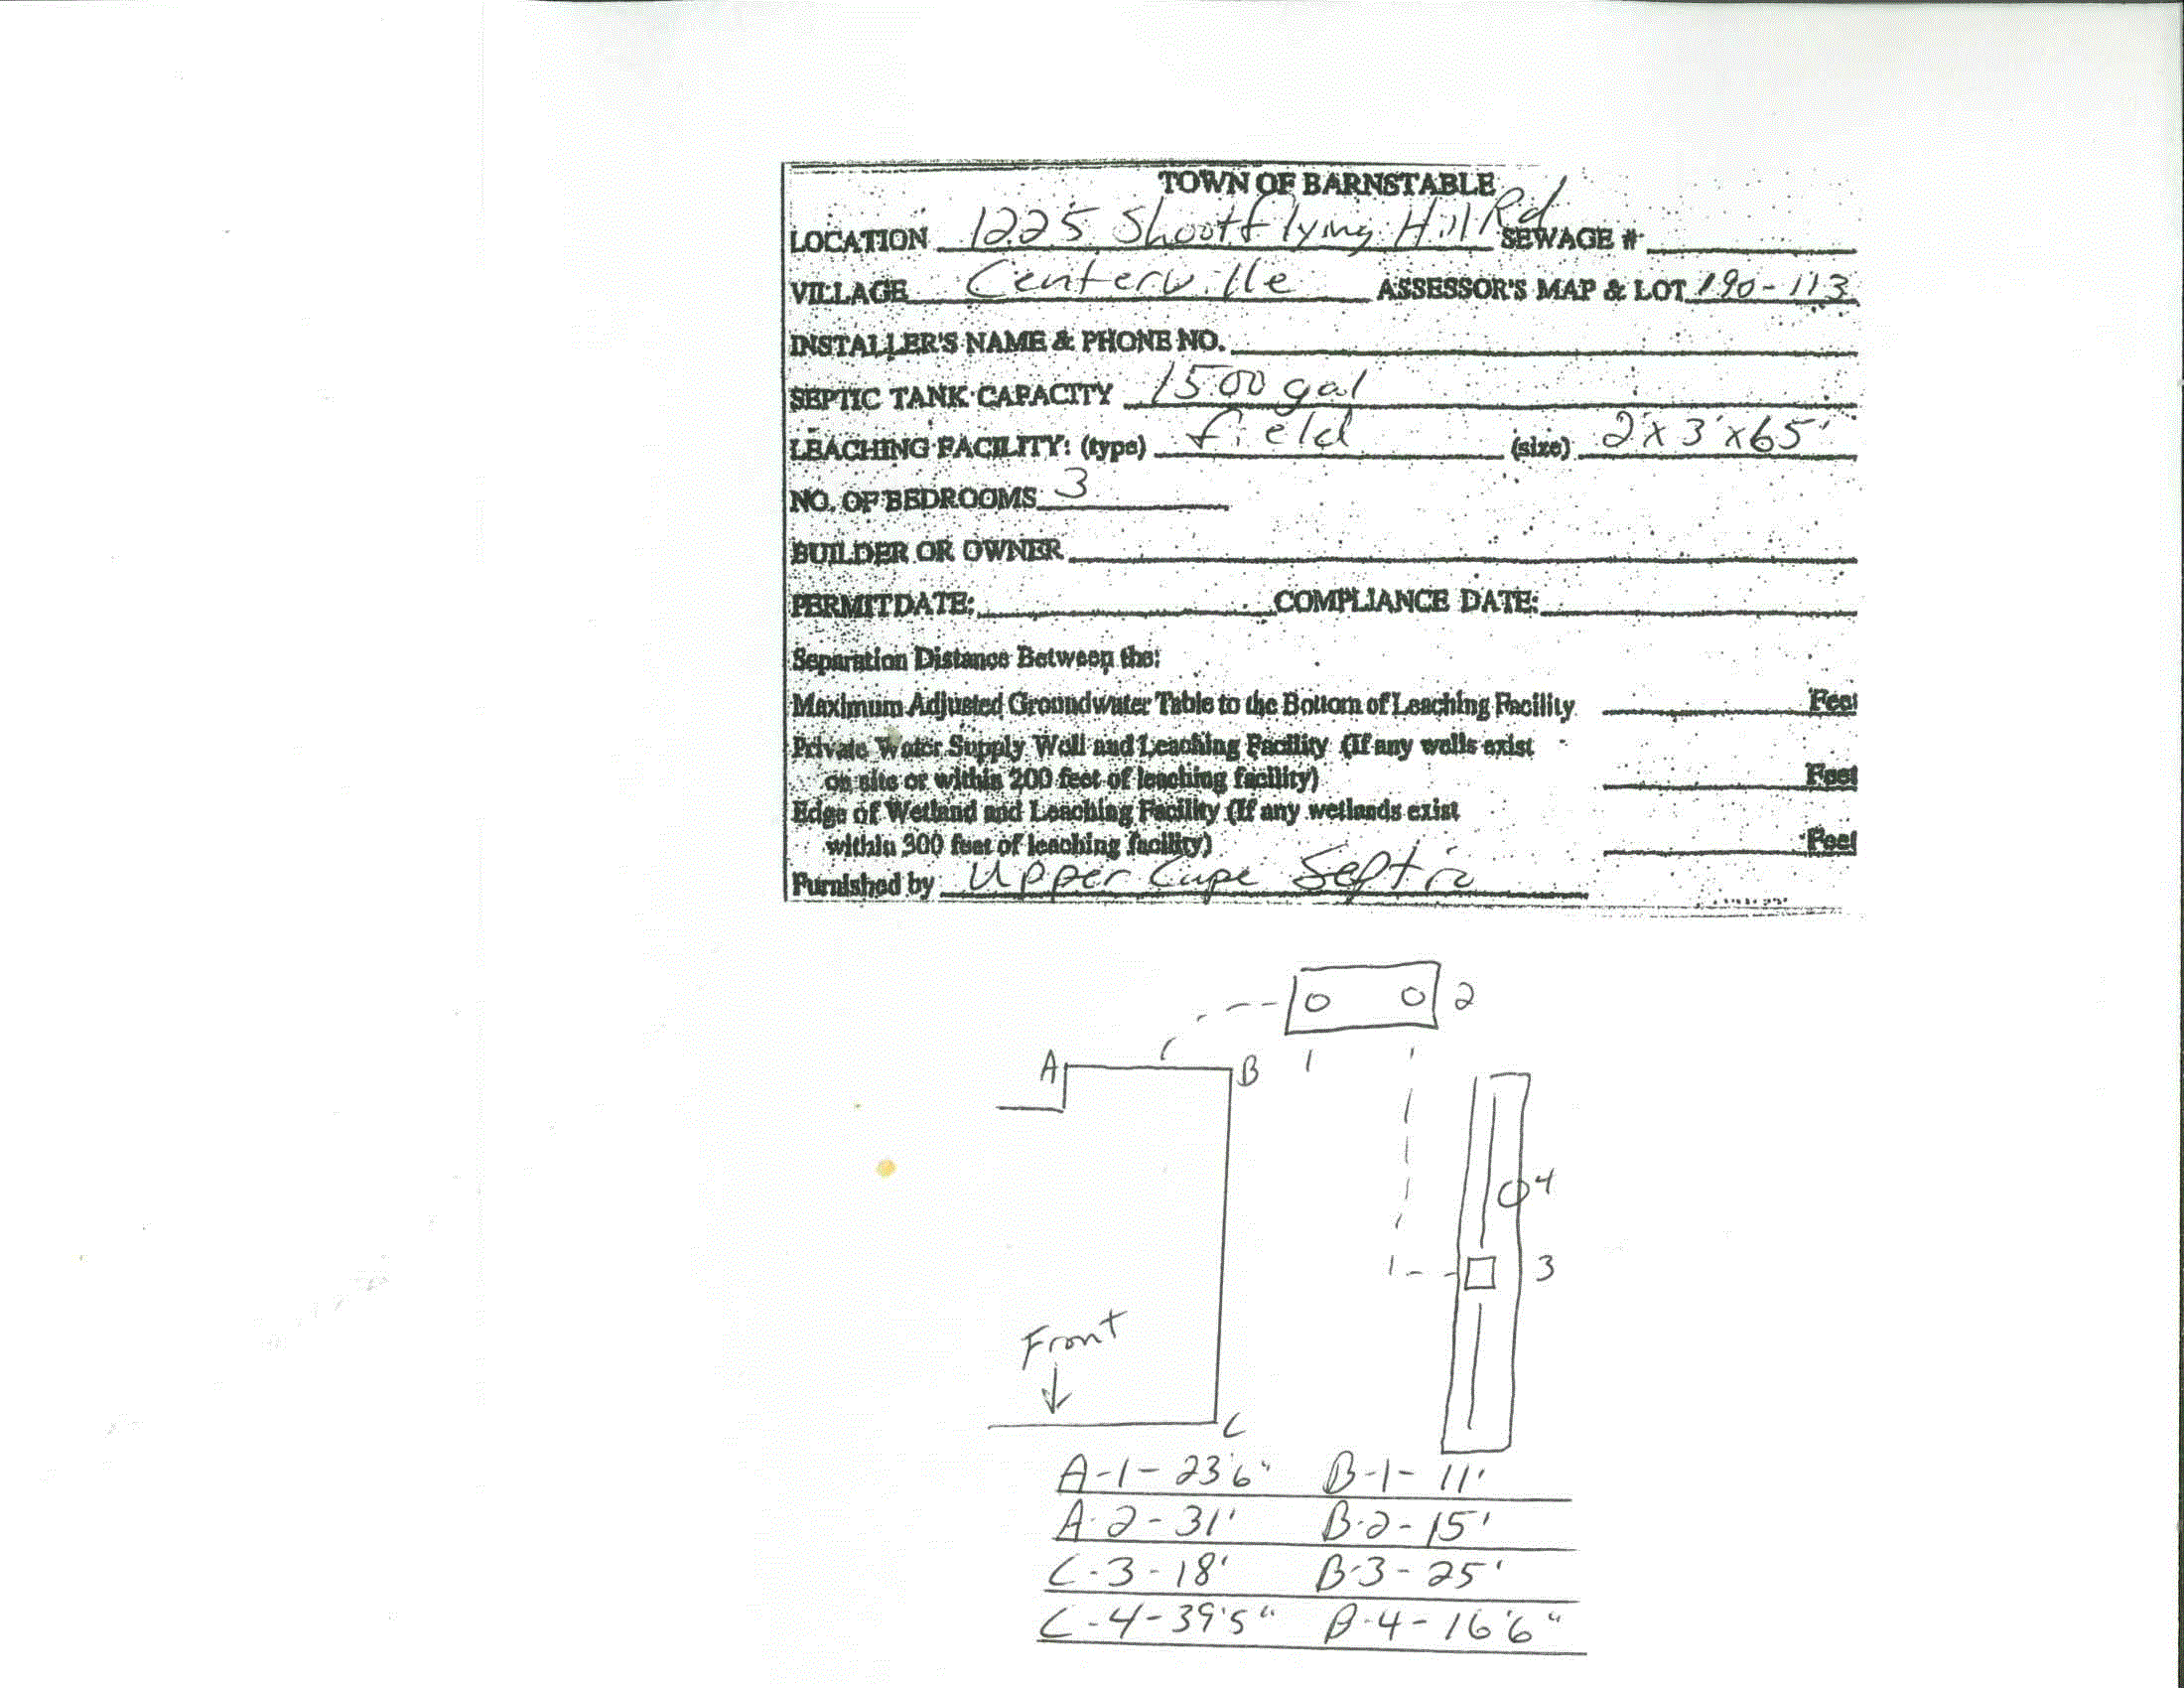 TOWN OF BARNSTABLE
LOCATION 1225 Shootflying Hill Rd SEWAGE #
VILLAGE Centerville ASSESSOR'S MAP & LOT 190-113
INSTALLER'S NAME & PHONE NO.
SEPTIC TANK CAPACITY 1500 gal
LEACHING FACILITY: (type) field (size) 2 x 3' x 65'
NO. OF BEDROOMS 3
BUILDER OR OWNER
PERMITDATE: COMPLIANCE DATE:
Separation Distance Between the:
Maximum Adjusted Groundwater Table to the Bottom of Leaching Facility Feet
Private Water Supply Well and Leaching Facility (If any wells exist
on site or within 200 feet of leaching facility) Feet
Edge of Wetland and Leaching Facility (If any wetlands exist
within 300 feet of leaching facility) Feet
Furnished by Upper Cape Septic
2
A B 1
4
3
Front
C
A-1- 23'6" B-1- 11'
A-2- 31' B-2- 15'
C-3- 18' B-3- 25'
C-4- 39'5" B-4- 16'6"